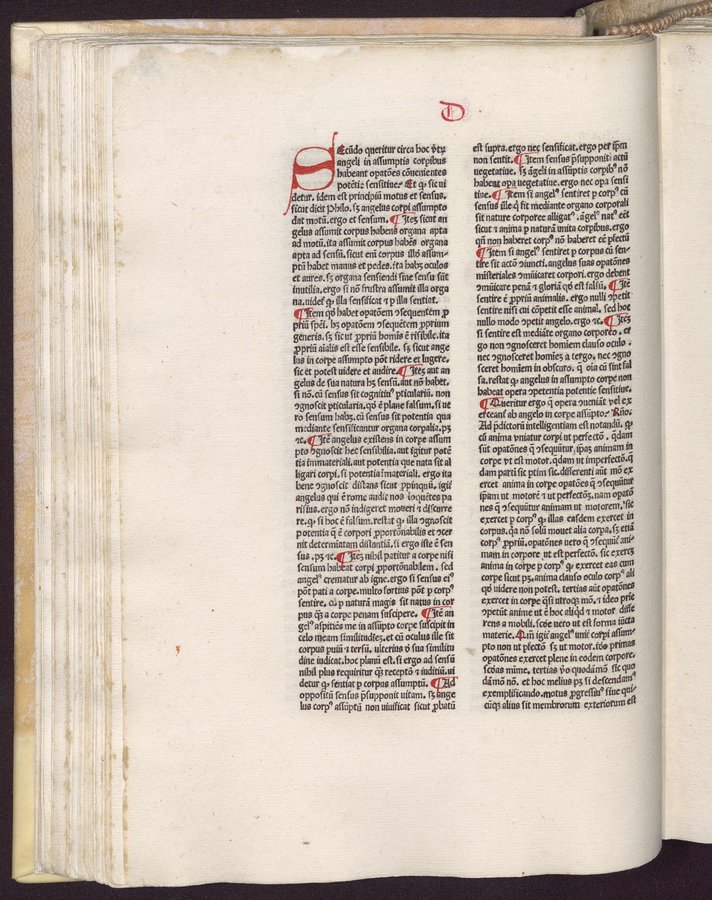 D
Secūdo queritur circa hoc vtꝝ
angeli in assumptis corpibus
habeant opatōes cōuenientes
potētie sensitiue. Et ꝙ sic vi
detur. idem est principiū motus et sensus.
sicut dicit Philo. sꝫ angelus corpi assumpto
dat motū. ergo et sensum. ¶ Itē sicut an
gelus assumit corpus habens organa apta
ad motū. ita assumit corpus habēs organa
apta ad sensū. sicut em̄ corpus illd̓ assum-
ptū habet manus et pedes. ita habꝫ oculos
et aures. sꝫ organa sensiendi sine sensu sūt
inutilia. ergo si nō frustra assumit illa orga
na. videt᷑ ꝙ illa sensificat ⁊ ꝑ illa sentiat.
¶ Item qḋ habet opatōem ꝯsequētem ꝓ
priū spēi. hꝫ opatōem ꝯsequētem ꝓprium
generis. sꝫ sicut ꝓpriū homīs ē risibile. ita
ꝓpriū aīalis est esse sensibile. sꝫ sicut ange
lus in corpe assumpto pōt ridere et lugere.
sic et potest videre et audire. ¶ Itē aut an
gelus de sua natura hꝫ sensū. aut nō habet.
si nō. cū sensus sit cognitiuꝰ pticulariū. non
ꝯgnoscit pticularia. qḋ ē plane falsum. si ve
ro sensum habꝫ. cū sensus sit potentia qua
mediante sensificantur organa corpalia. pꝫ
⁊c. ¶ Itē angelus existens in corpe assum
pto ꝯgnoscit hec sensibilia. aut igitur potē
tia immateriali. aut potentia que nata sit al
ligari corpi. si potentia īmateriali. ergo ita
bene ꝯgnoscit distans sicut ꝓpinquū. igit̄
angelus qui ē rome audit nos loquētes pa
risius. ergo nō indigeret moueri ⁊ discurre
re. ꝙ si hoc ē falsum. restat ꝙ illa ꝯgnoscit
potentia q̄ ē corpori ꝓportōnabilis et ꝯcer
nit determinatam distantiā. si ergo iste ē sen
sus. pꝫ ⁊c. ¶ Itē nihil patitur a corpe nisi
sensum habeat corpi ꝓportōnabilem. sed
angelꝰ crematur ab igne. ergo si sensus eiꝰ
pōt pati a corpe. multo fortius pōt ꝑ corpꝰ
sentire. cū ꝑ naturā magis sit natus in cor
pus q̄ꝫ a corpe penam suscipere. ¶ Itē an
gelꝰ aspiciēs me in assūpto corpe suscipit in
celo meam similitudinē. et cū oculus ille sit
corpus puiū ⁊ tersū. vlterius ꝟo sua similitu
dine iudicat. hoc planū est. si ergo ad sensū
nihil plus requiritur q̄ꝫ receptō ⁊ iuditiū. vi
detur ꝙ sentiat ꝑ corpus assumptū. ¶ Ad
oppositū sensus p̄supponit vitam. sꝫ ange
lus corpꝰ assūptū non viuificat sicut ꝓbatū
est supra. ergo nec sensificat. ergo per ip̄m
non sentit. ¶ Item sensus p̄supponit actū
vegetatiue. sꝫ āgeli in assūptis corpibꝰ nō
habent opa vegetatiue. ergo nec opa sensi
tiue. ¶ Item si angelꝰ sentiret ꝑ corpꝰ cū
sensus ille q̄ sit mediante organo corporali
sit nature corporee alligatꝰ. āgelꝰ natꝰ eēt
sicut ⁊ anima ꝑ naturā vnita corpibus. ergo
qn̄ non haberet corpꝰ nō haberet eē ꝑfectū
¶ Item si angelꝰ sentiret ꝑ corpus cū sen-
tire sit actō ꝯiuncti. angelus suas opatōnes
misteriales ꝯmūicaret corpori. ergo deberet
ꝯmūicare penā ⁊ gloriā qḋ est falsū. ¶ Itē
sentire ē ꝓpriū animalis. ergo nulli ꝯpetit
sentire nisi cui cōpetit esse animal. sed hoc
nullo modo ꝯpetit angelo. ergo ⁊c. ¶ Itē
si sentire est mediāte organo corporeo. er
go non ꝯgnosceret hominem clauso oculo.
nec ꝯgnosceret homīes a tergo. nec ꝯgno
sceret homīem in obscuro. q̄ oīa cū sint fal
sa. restat ꝙ angelus in assumpto corpe non
habeat opera ꝯpetentia potentie sensitiue.
¶ Queritur ergo q̄ opera ꝯueniāt vel ex
erceant᷑ ab angelo in corpe assūpto. Rn̄o.
Ad p̄dictorū intelligentiam est notandū. ꝙ
cū anima vniatur corpi vt perfectō. q̄dam
sūt opatōnes q̄ ꝯsequūtur. ip̄aꝫ animam in
corpe vt est motor. q̄dam vt imperfectō. q̄
dam parti sic ptim sic. differenti aūt mō ex
ercet anima in corpe opatōes q̄ ꝯsequūtur
ip̄am vt motorē ⁊ vt perfectōꝫ. nam opatō
nes q̄ ꝯsequūtur animam vt motorem. sic
exercet ꝑ corpꝰ ꝙ illas easdem exercet in
corpus. qa nō solū mouet alia corpa. sꝫ etiā
corpꝰ ꝓpriū. opatōnes vero q̄ ꝯsequūt᷑ ani-
mam in corpore vt est perfectō. sic exercꝫ
anima in corpe ꝑ corpꝰ ꝙ exercet eas cum
corpe sicut pꝫ. anima clauso oculo corpꝰ ali
qḋ videre non potest. tertias aūt opatōnes
exercet in corpe q̄si vtroqꝫ mō. ⁊ ideo prie
ꝯpetūt anime vt ē hoc aliqḋ ⁊ motor diffe
rens a mobili. scdē vero vt est forma iūcta
materie. Qm̄ igit̄ angelꝰ vnit᷑ corpi assum-
pto non vt ꝑfectō sꝫ vt motor. iō primas
opatōnes exercet plene in eodem corpore.
scdas mīme. tertias ꝟo quodāmō sic quo
dāmō nō. et hoc melius pꝫ si descendamꝰ
exemplificando. motus ꝓgressiuꝰ siue qui-
cūqꝫ alius sit membrorum exteriorum est